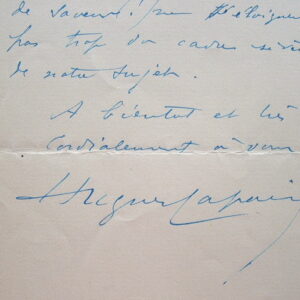 de savoir! ne s'éloigne
pas trop du cadre
de notre sujet.
A bientôt et très
cordialement à vous
Hugues Lapaire